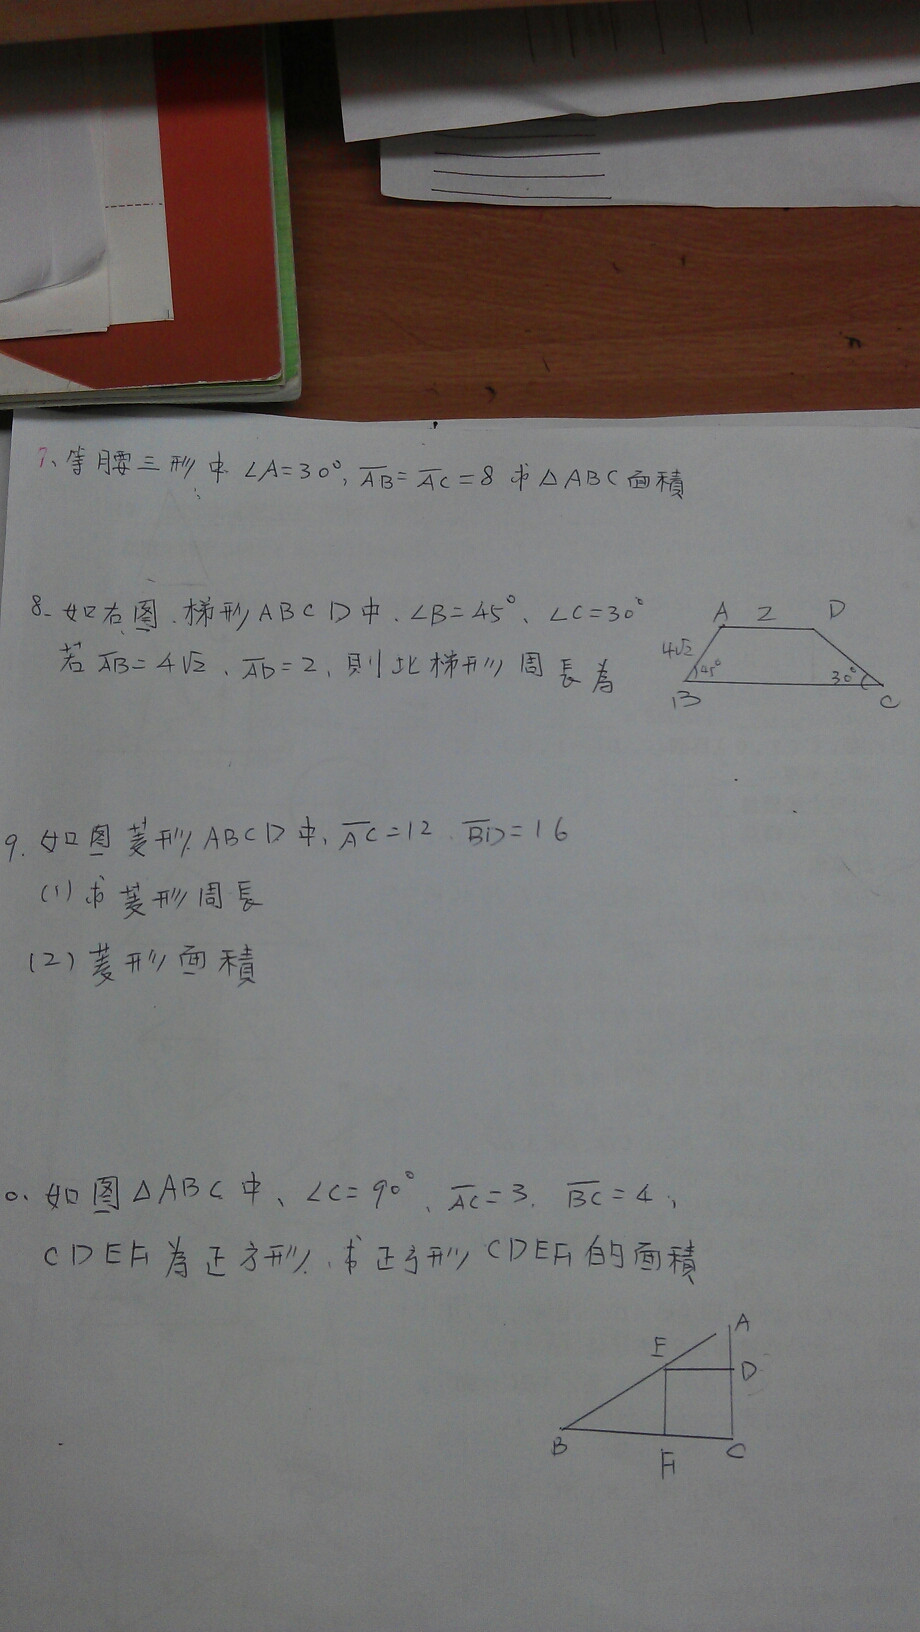 7、等腰三形中 ∠A=30°, A̅B̅=A̅C̅=8 求△ABC面積
8、如右图、梯形ABCD中、∠B=45°、∠C=30°
若A̅B̅=4√2、A̅D̅=2、則此梯形周長為
A 2 D
4√2
45° 30°
B C
9、如图菱形ABCD中、A̅C̅=12、B̅D̅=16
(1)求菱形周長
(2)菱形面積
0、如图△ABC中、∠C=90°、A̅C̅=3、B̅C̅=4、
CDEF為正方形、求正方形CDEF的面積
A
E
D
B
F
C